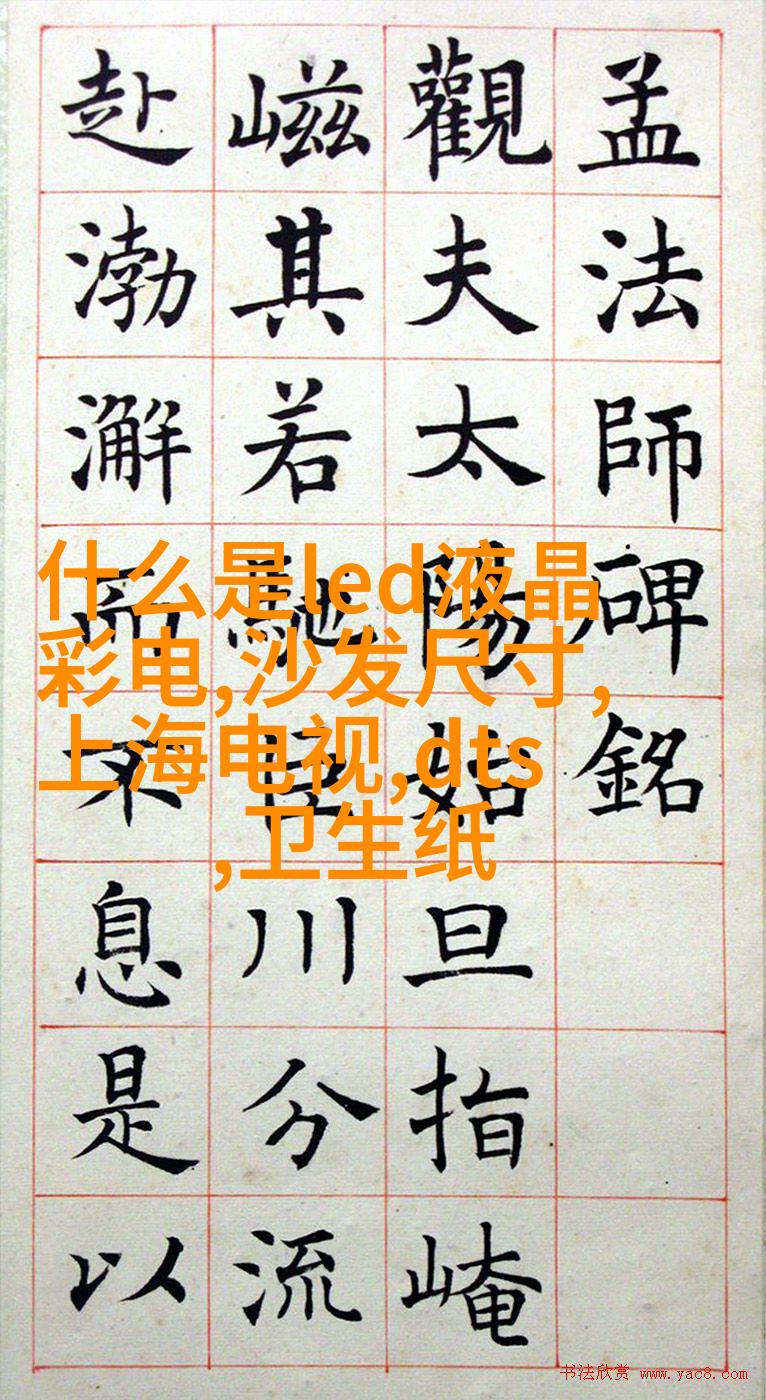 孟法師碑銘
觀夫太陽始旦指崦
嵫其若馳巨川分流
赴渤澥而不息是以
什么是led液晶
彩电,沙发尺寸,
上海电视,dts
,卫生纸
书法欣赏 www.yac8.com